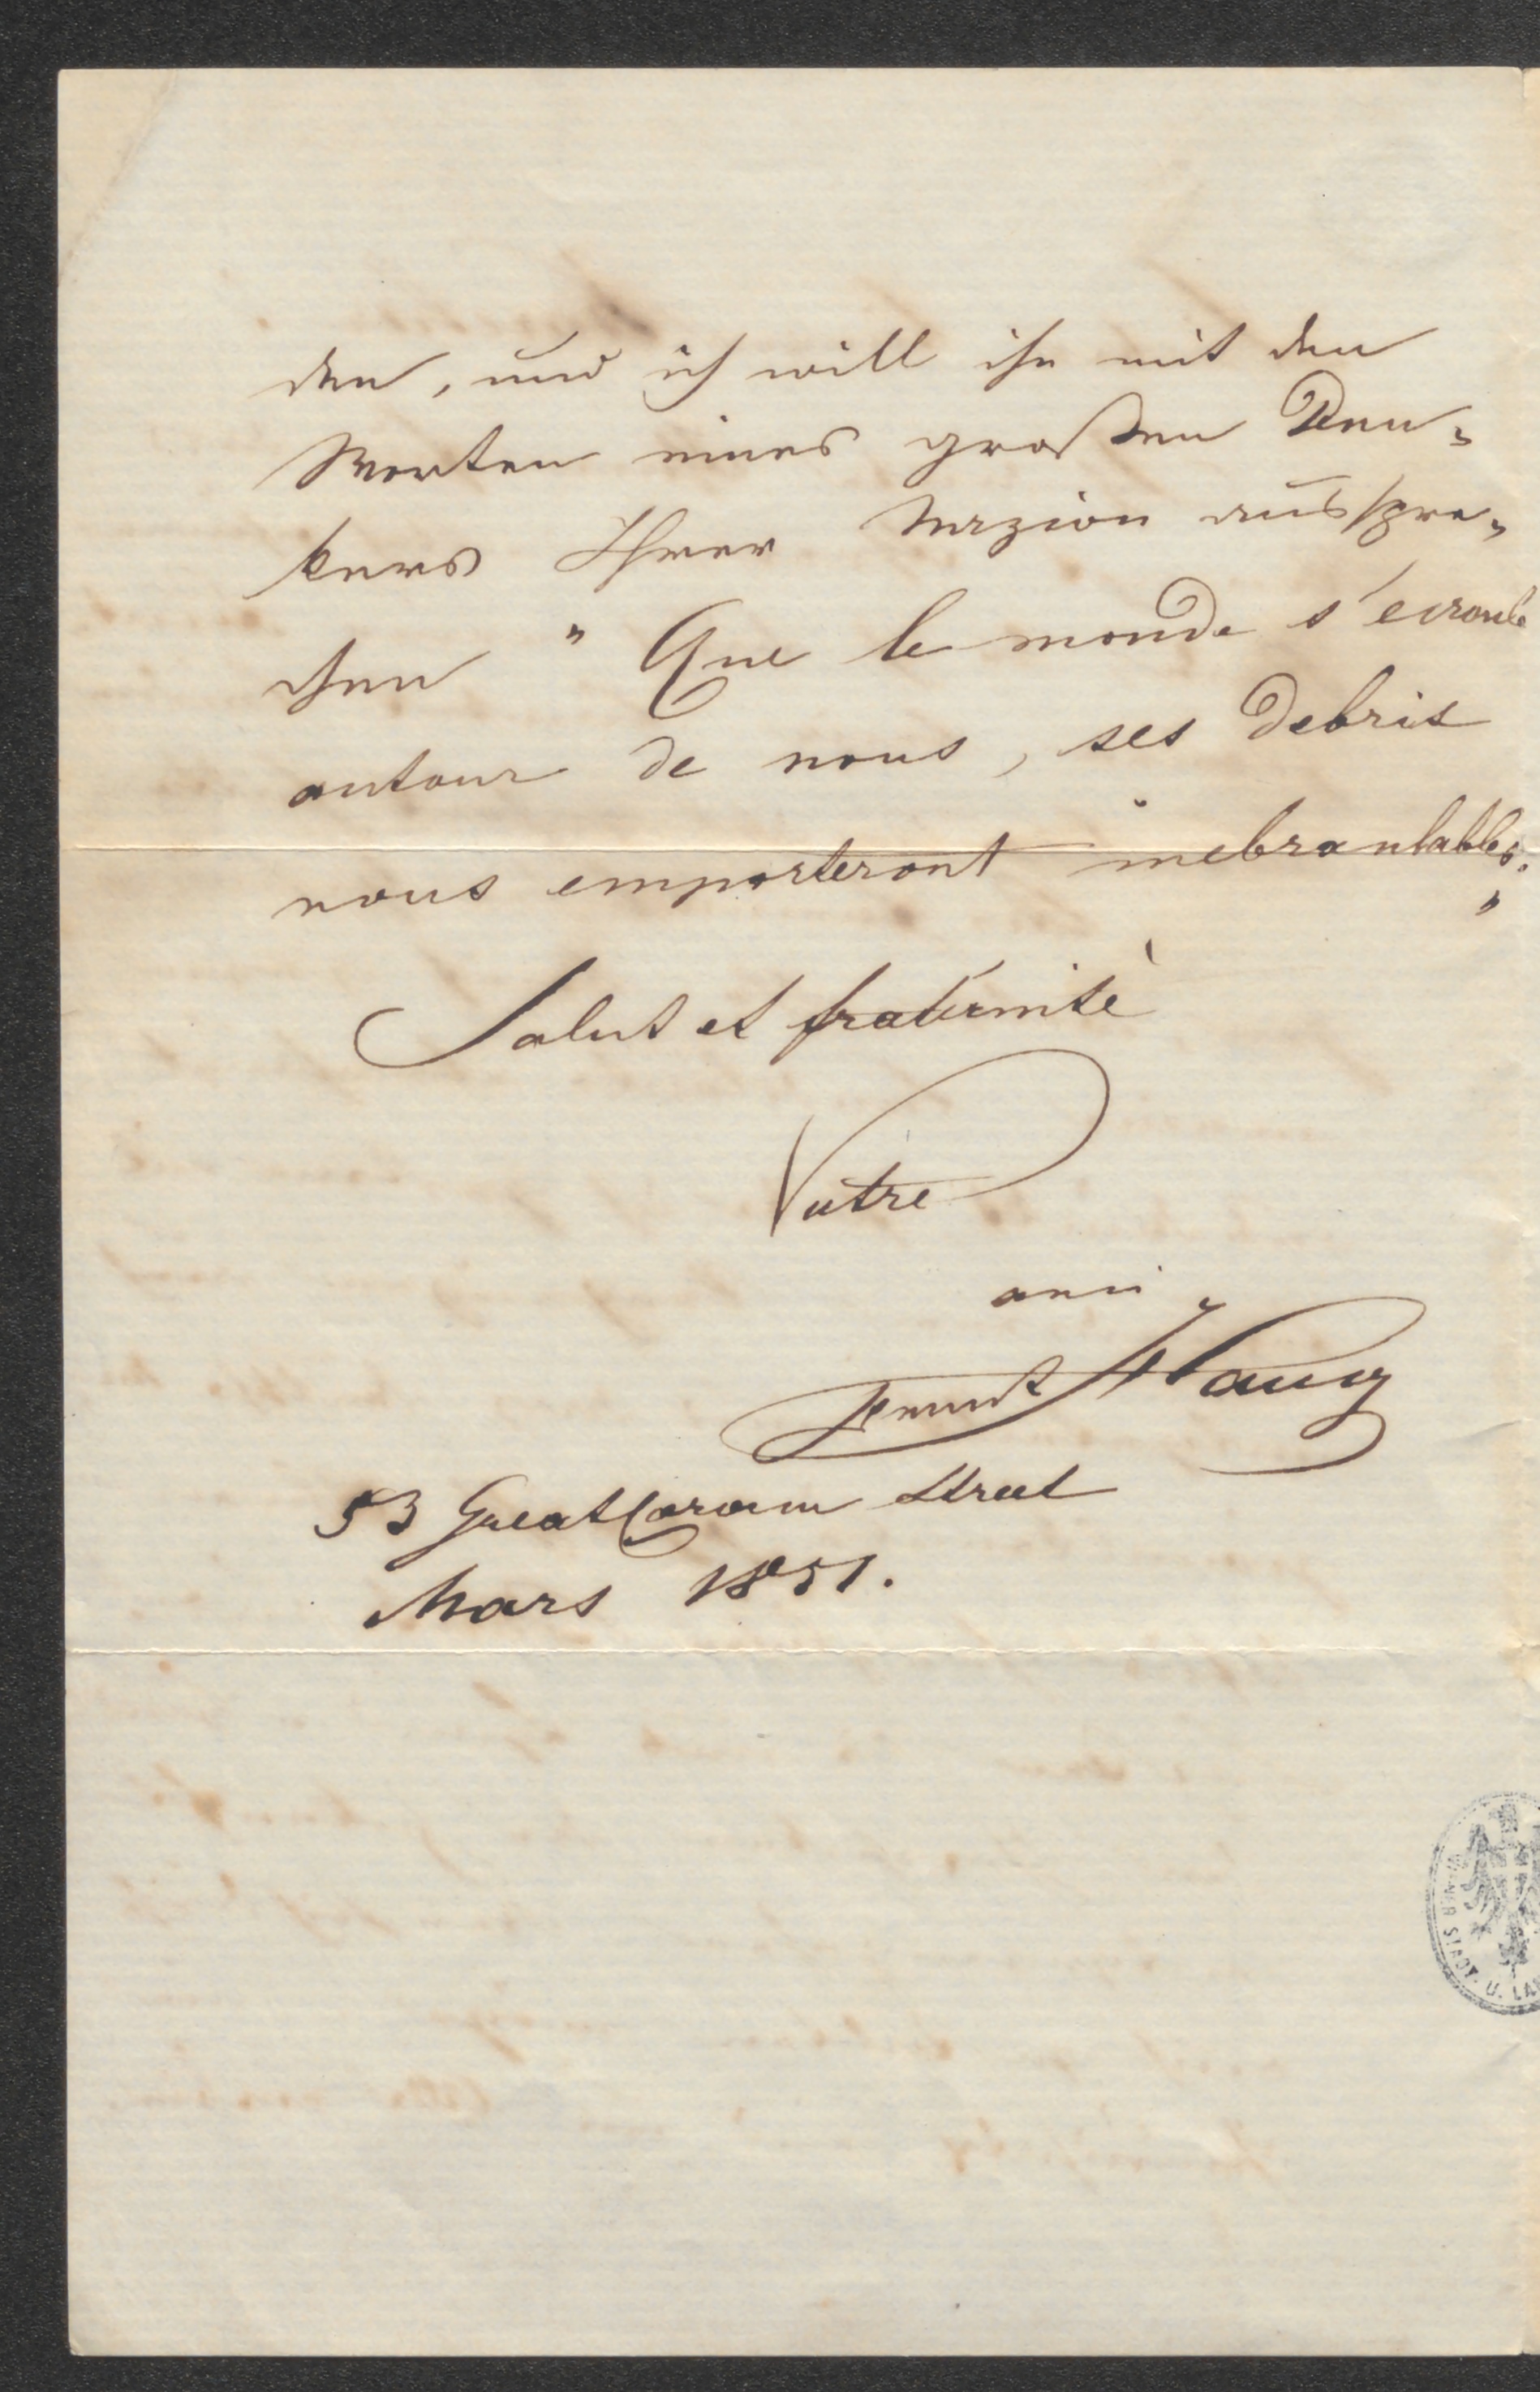 den, und ich will ihn mit den
Worten eines großen Den-
kers Ihrer Nazion ausspre-
chen "Que le monde s'ecroule
autour de nous, ses debris
nous emporteront inebranlables."
Salut et fraternité
Votre
ami
Ernst Haug
53 Great Coram Street
Mars 1851.
WIENER STADT. U. LA